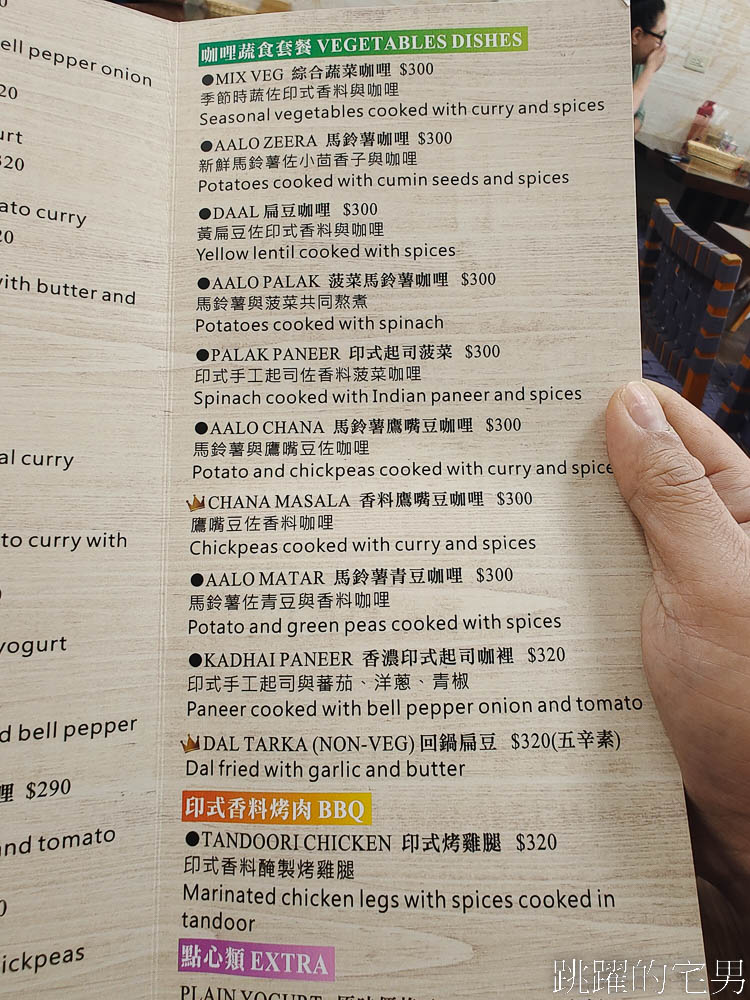 ell pepper onion
20
urt
320
ato curry
20
with butter and
al curry
to curry with
yogurt
d bell pepper
哩 $290
and tomato
0
ickpeas
咖哩蔬食套餐 VEGETABLES DISHES
●MIX VEG 綜合蔬菜咖哩 $300
季節時蔬佐印式香料與咖哩
Seasonal vegetables cooked with curry and spices
●AALO ZEERA 馬鈴薯咖哩 $300
新鮮馬鈴薯佐小茴香子與咖哩
Potatoes cooked with cumin seeds and spices
●DAAL 扁豆咖哩 $300
黃扁豆佐印式香料與咖哩
Yellow lentil cooked with spices
●AALO PALAK 菠菜馬鈴薯咖哩 $300
馬鈴薯與菠菜共同熬煮
Potatoes cooked with spinach
●PALAK PANEER 印式起司菠菜 $300
印式手工起司佐香料菠菜咖哩
Spinach cooked with Indian paneer and spices
●AALO CHANA 馬鈴薯鷹嘴豆咖哩 $300
馬鈴薯與鷹嘴豆佐咖哩
Potato and chickpeas cooked with curry and spice
CHANA MASALA 香料鷹嘴豆咖哩 $300
鷹嘴豆佐香料咖哩
Chickpeas cooked with curry and spices
●AALO MATAR 馬鈴薯青豆咖哩 $300
馬鈴薯佐青豆與香料咖哩
Potato and green peas cooked with spices
●KADHAI PANEER 香濃印式起司咖裡 $320
印式手工起司與蕃茄、洋蔥、青椒
Paneer cooked with bell pepper onion and tomato
DAL TARKA (NON-VEG) 回鍋扁豆 $320(五辛素)
Dal fried with garlic and butter
印式香料烤肉 BBQ
●TANDOORI CHICKEN 印式烤雞腿 $320
印式香料醃製烤雞腿
Marinated chicken legs with spices cooked in
tandoor
點心類 EXTRA
PLAIN YOGURT
跳躍的宅男